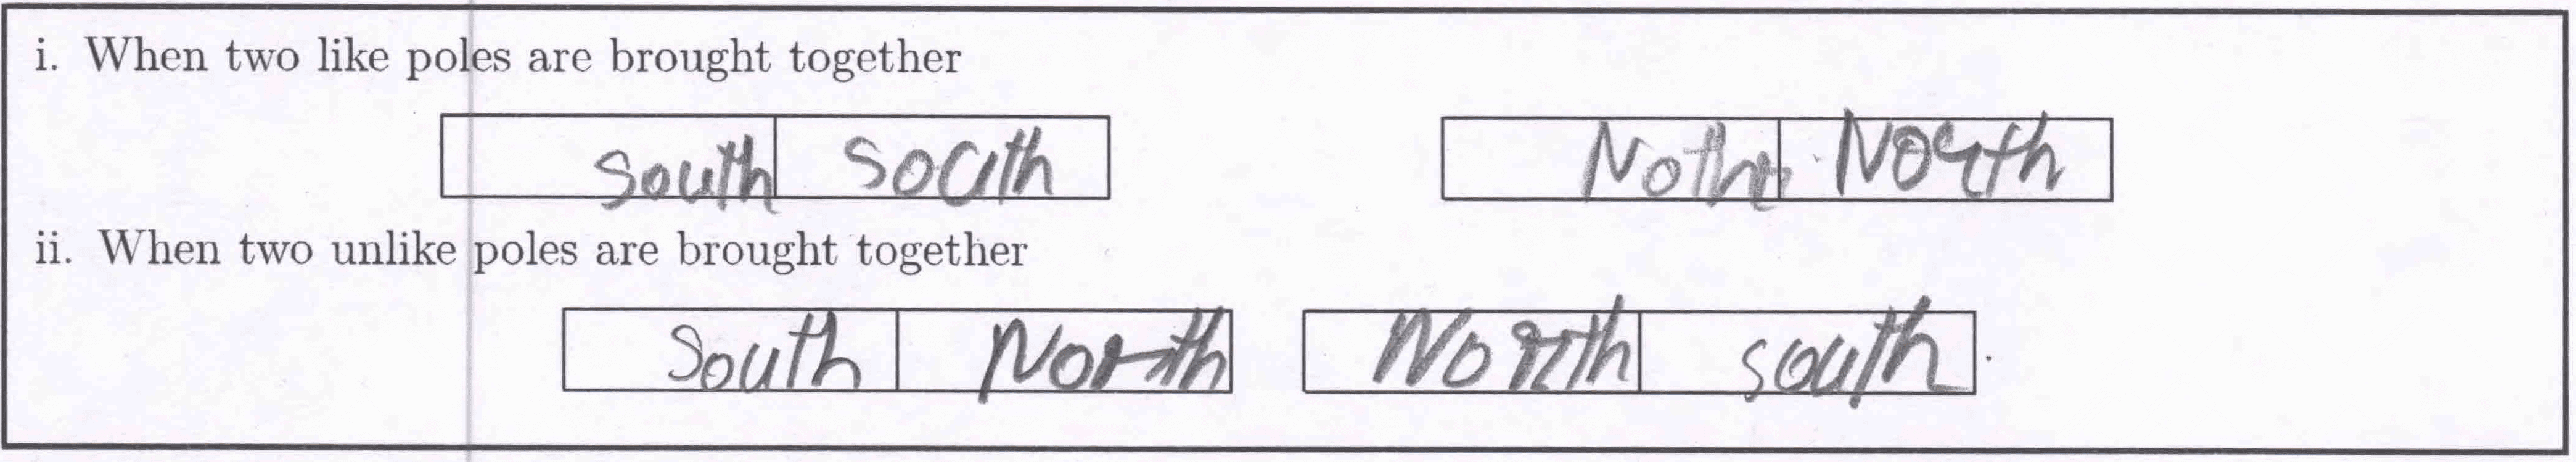 i. When two like poles are brought together
south south Nothe North
ii. When two unlike poles are brought together
South North North south